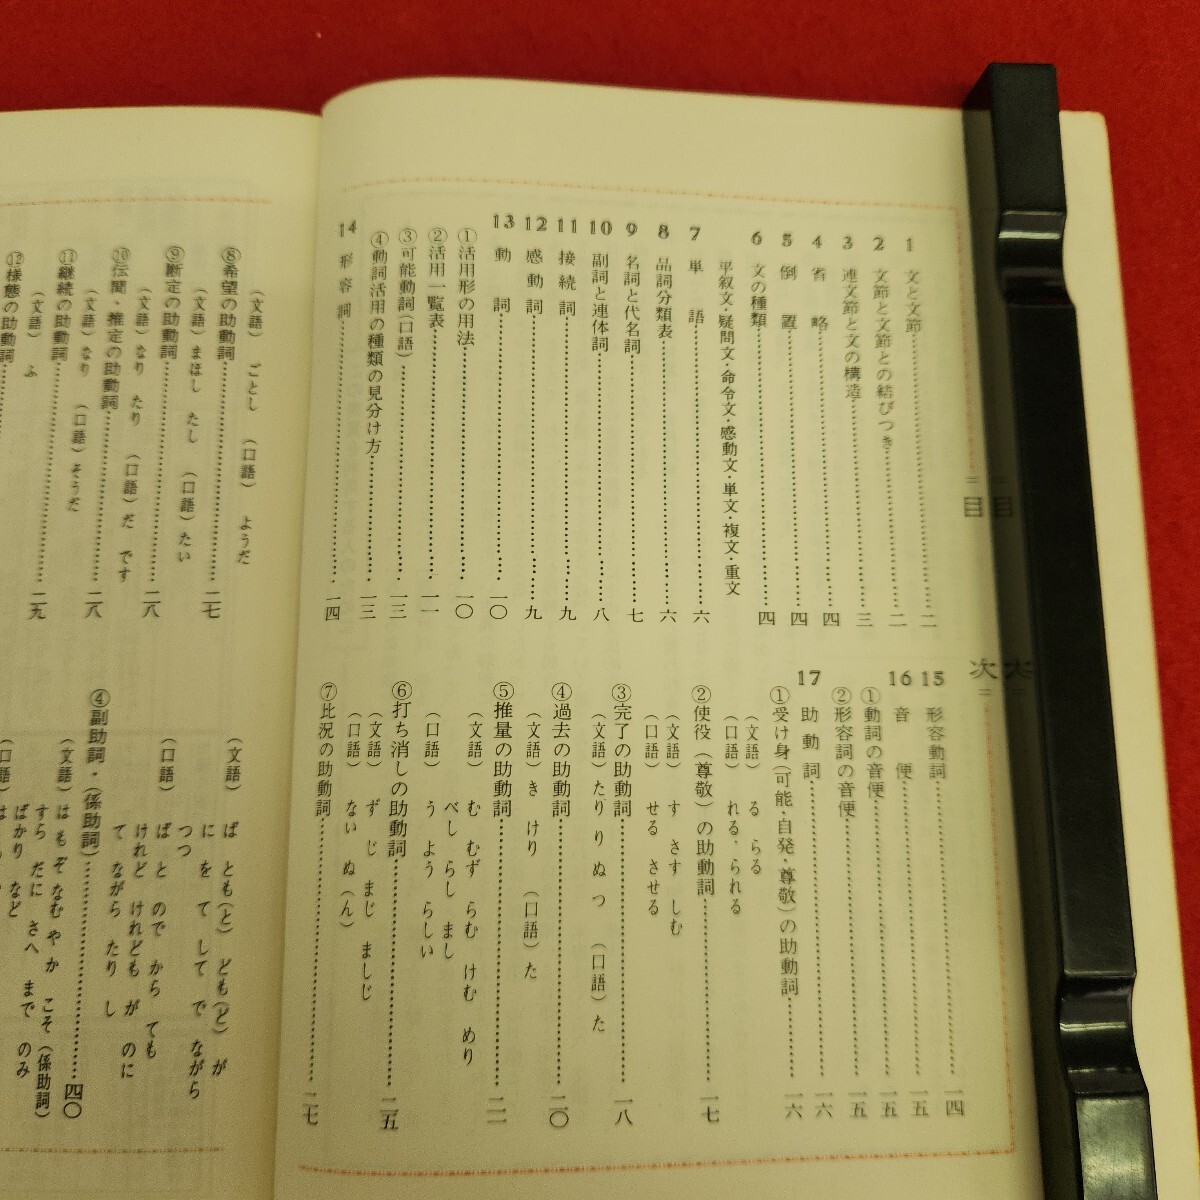 ＝目　次＝
1　文と文節……二
2　文節と文節との結びつき……二
3　連文節と文の構造……三
4　省　略……四
5　倒　置……四
6　文の種類……四
平叙文・疑問文・命令文・感動文・単文・複文・重文
7　単　語……六
8　品詞分類表……六
9　名詞と代名詞……七
10　副詞と連体詞……八
11　接続詞……九
12　感動詞……九
13　動　詞……一〇
①活用形の用法……一〇
②活用一覧表……一一
③可能動詞(口語)……一三
④動詞活用の種類の見分け方……一三
14　形容詞……一四
15　形容動詞……一四
16　音　便……一五
①動詞の音便……一五
②形容詞の音便……一五
17　助動詞……一六
①受け身(可能・自発・尊敬)の助動詞……一六
(文語)　る　らる
(口語)　れる・られる
②使役(尊敬)の助動詞……一七
(文語)　す　さす　しむ
(口語)　せる　させる
③完了の助動詞……一八
(文語)たり　り　ぬ　つ　(口語)た
④過去の助動詞……二〇
(文語)き　けり　(口語)た
⑤推量の助動詞……二一
(文語)　む　むず　らむ　けむ　めり
べし　らし　まし
(口語)　う　よう　らしい
⑥打ち消しの助動詞……二五
(文語)　ず　じ　まじ　ましじ
(口語)　ない　ぬ(ん)
⑦比況の助動詞……二七
(文語)　ごとし　(口語)　ようだ
⑧希望の助動詞……二七
(文語)まほし　たし　(口語)たい
⑨断定の助動詞……二八
(文語)なり　たり　(口語)だ　です
⑩伝聞・推定の助動詞……二八
(文語)なり　(口語)そうだ
⑪継続の助動詞……二九
(文語)　ふ
⑫様態の助動詞
(文語)　ば　とも(と)　ども(ど)　が
に　を　て　して　で　ながら
つつ
(口語)　ば　と　ので　から　ても
けれど　けれども　が　のに
て　ながら　たり　し
④副助詞・(係助詞)……四〇
(文語)は　も　ぞ　なむ　や　か　こそ(係助詞)
すら　だに　さへ　まで　のみ
ばかり　など
(口語)　は